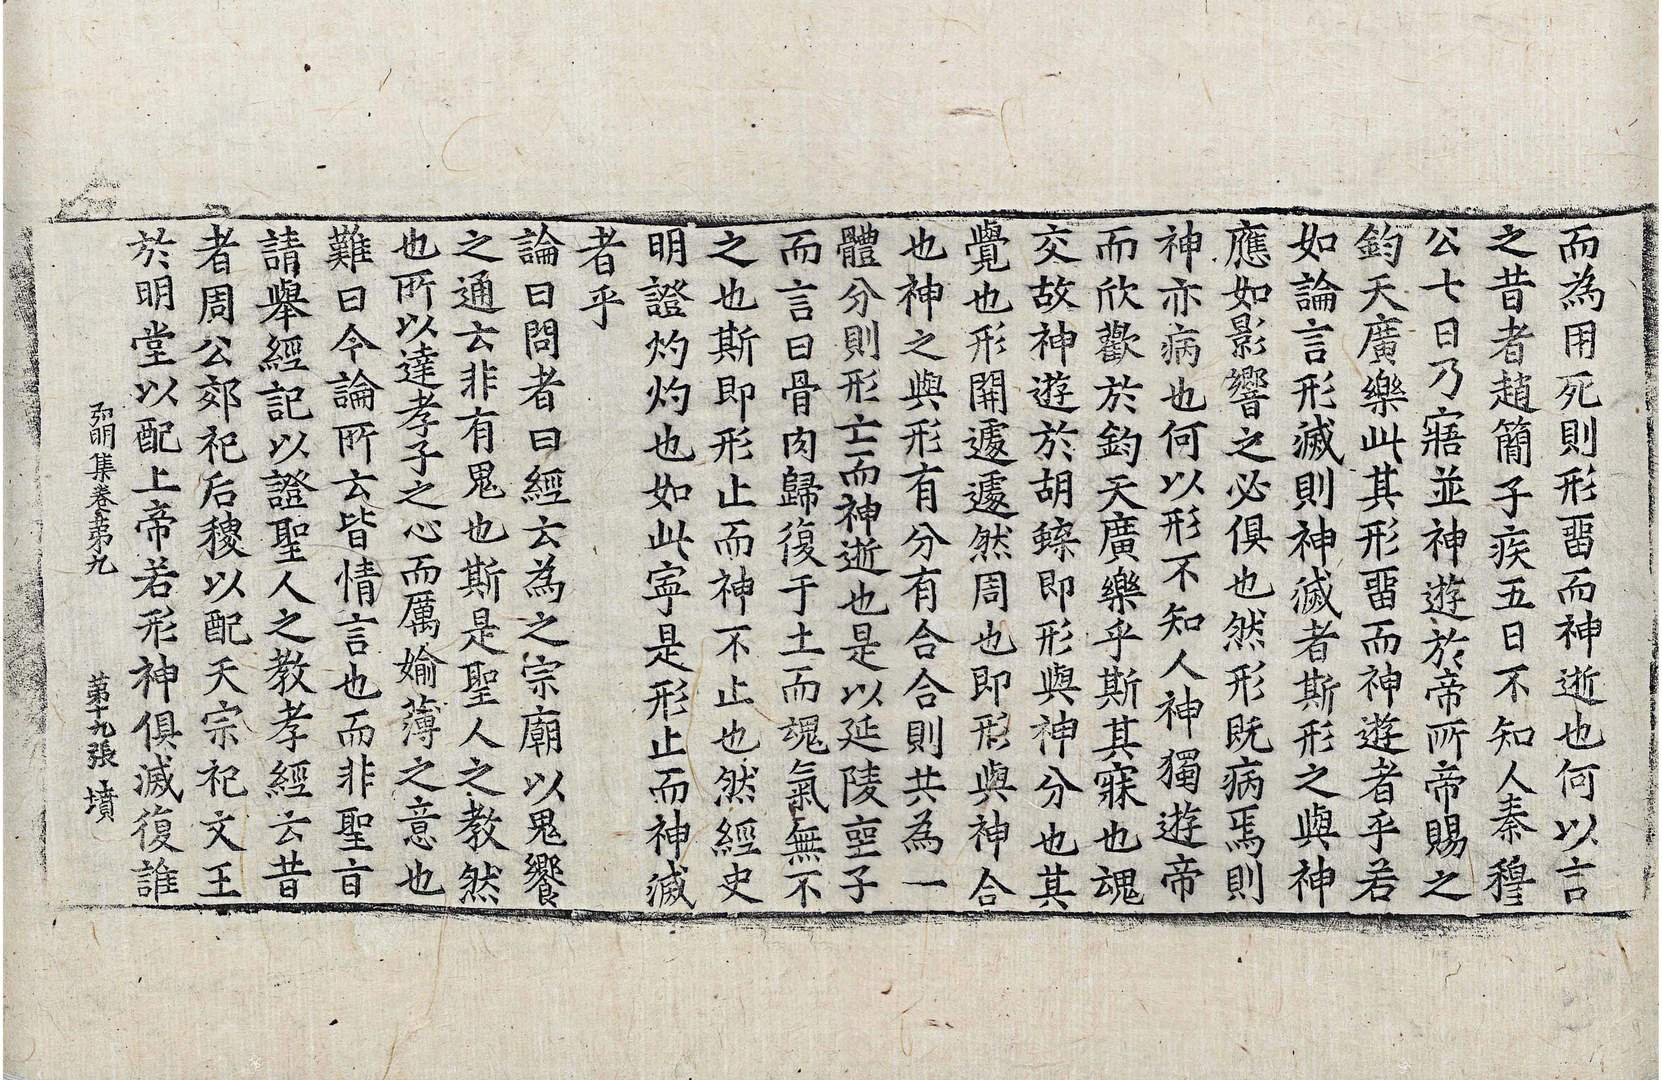 而為用死則形畱而神逝也何以言
之昔者趙簡子疾五日不知人秦穆
公七日乃寤並神遊於帝所帝賜之
鈞天廣樂此其形畱而神遊者乎若
如論言形滅則神滅者斯形之與神
應如影響之必俱也然形既病焉則
神亦病也何以形不知人神獨遊帝
而欣歡於鈞天廣樂乎斯其寐也魂
交故神遊於胡蝶即形與神分也其
覺也形開遽遽然周也即形與神合
也神之與形有分有合合則共為一
體分則形亡而神逝也是以延陵窆子
而言曰骨肉歸復于土而魂氣無不
之也斯即形止而神不止也然經史
明證灼灼也如此寧是形止而神滅
者乎
論曰問者曰經云為之宗廟以鬼饗
之通云非有鬼也斯是聖人之教然
也所以達孝子之心而厲婾薄之意也
難曰今論所云皆情言也而非聖旨
請舉經記以證聖人之教孝經云昔
者周公郊祀后稷以配天宗祀文王
於明堂以配上帝若形神俱滅復誰
弘明集卷第九 第十九張 墳